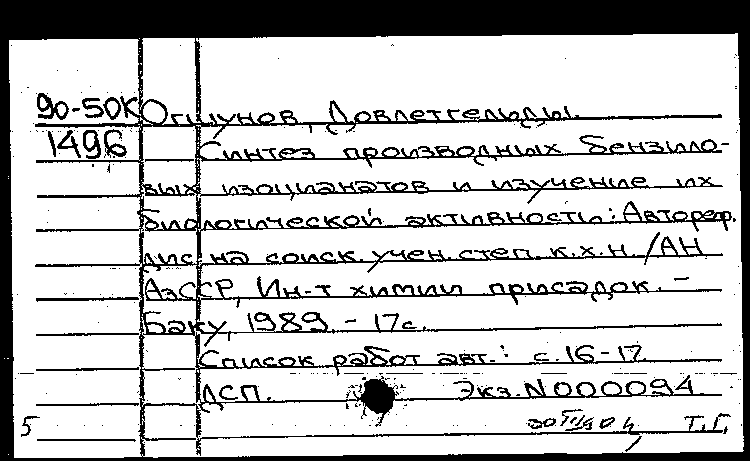 90-50К Огшунов, Довлетгельды.
1496 Синтез производных бензило-
вых изоцианатов и изучение их
биологической активности: Автореф.
дис. на соиск. учен. степ. к.х.н. /АН
АзССР, Ин-т химии присадок. –
Баку, 1989. – 17с.
Список работ авт.: с.16-17
ДСП. Экз.N000094.
5 Т.Г.